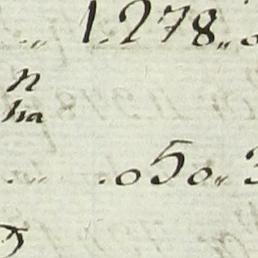 1.278,,
n
ha
.050,,